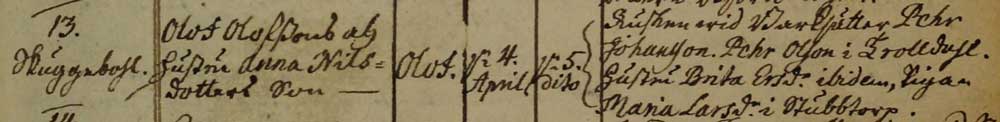 13.
Skuggebohl.
Olof Olofssons och
hustru Anna Nils=
dotters Son —
Olof.
d. 4.
April
d. 5.
dito
Johanson. Pehr Olson i Trolldahl.
hustru Brita Ersdr. ibidem, Pigan
Maria Larsdr. i Stubbtorp.